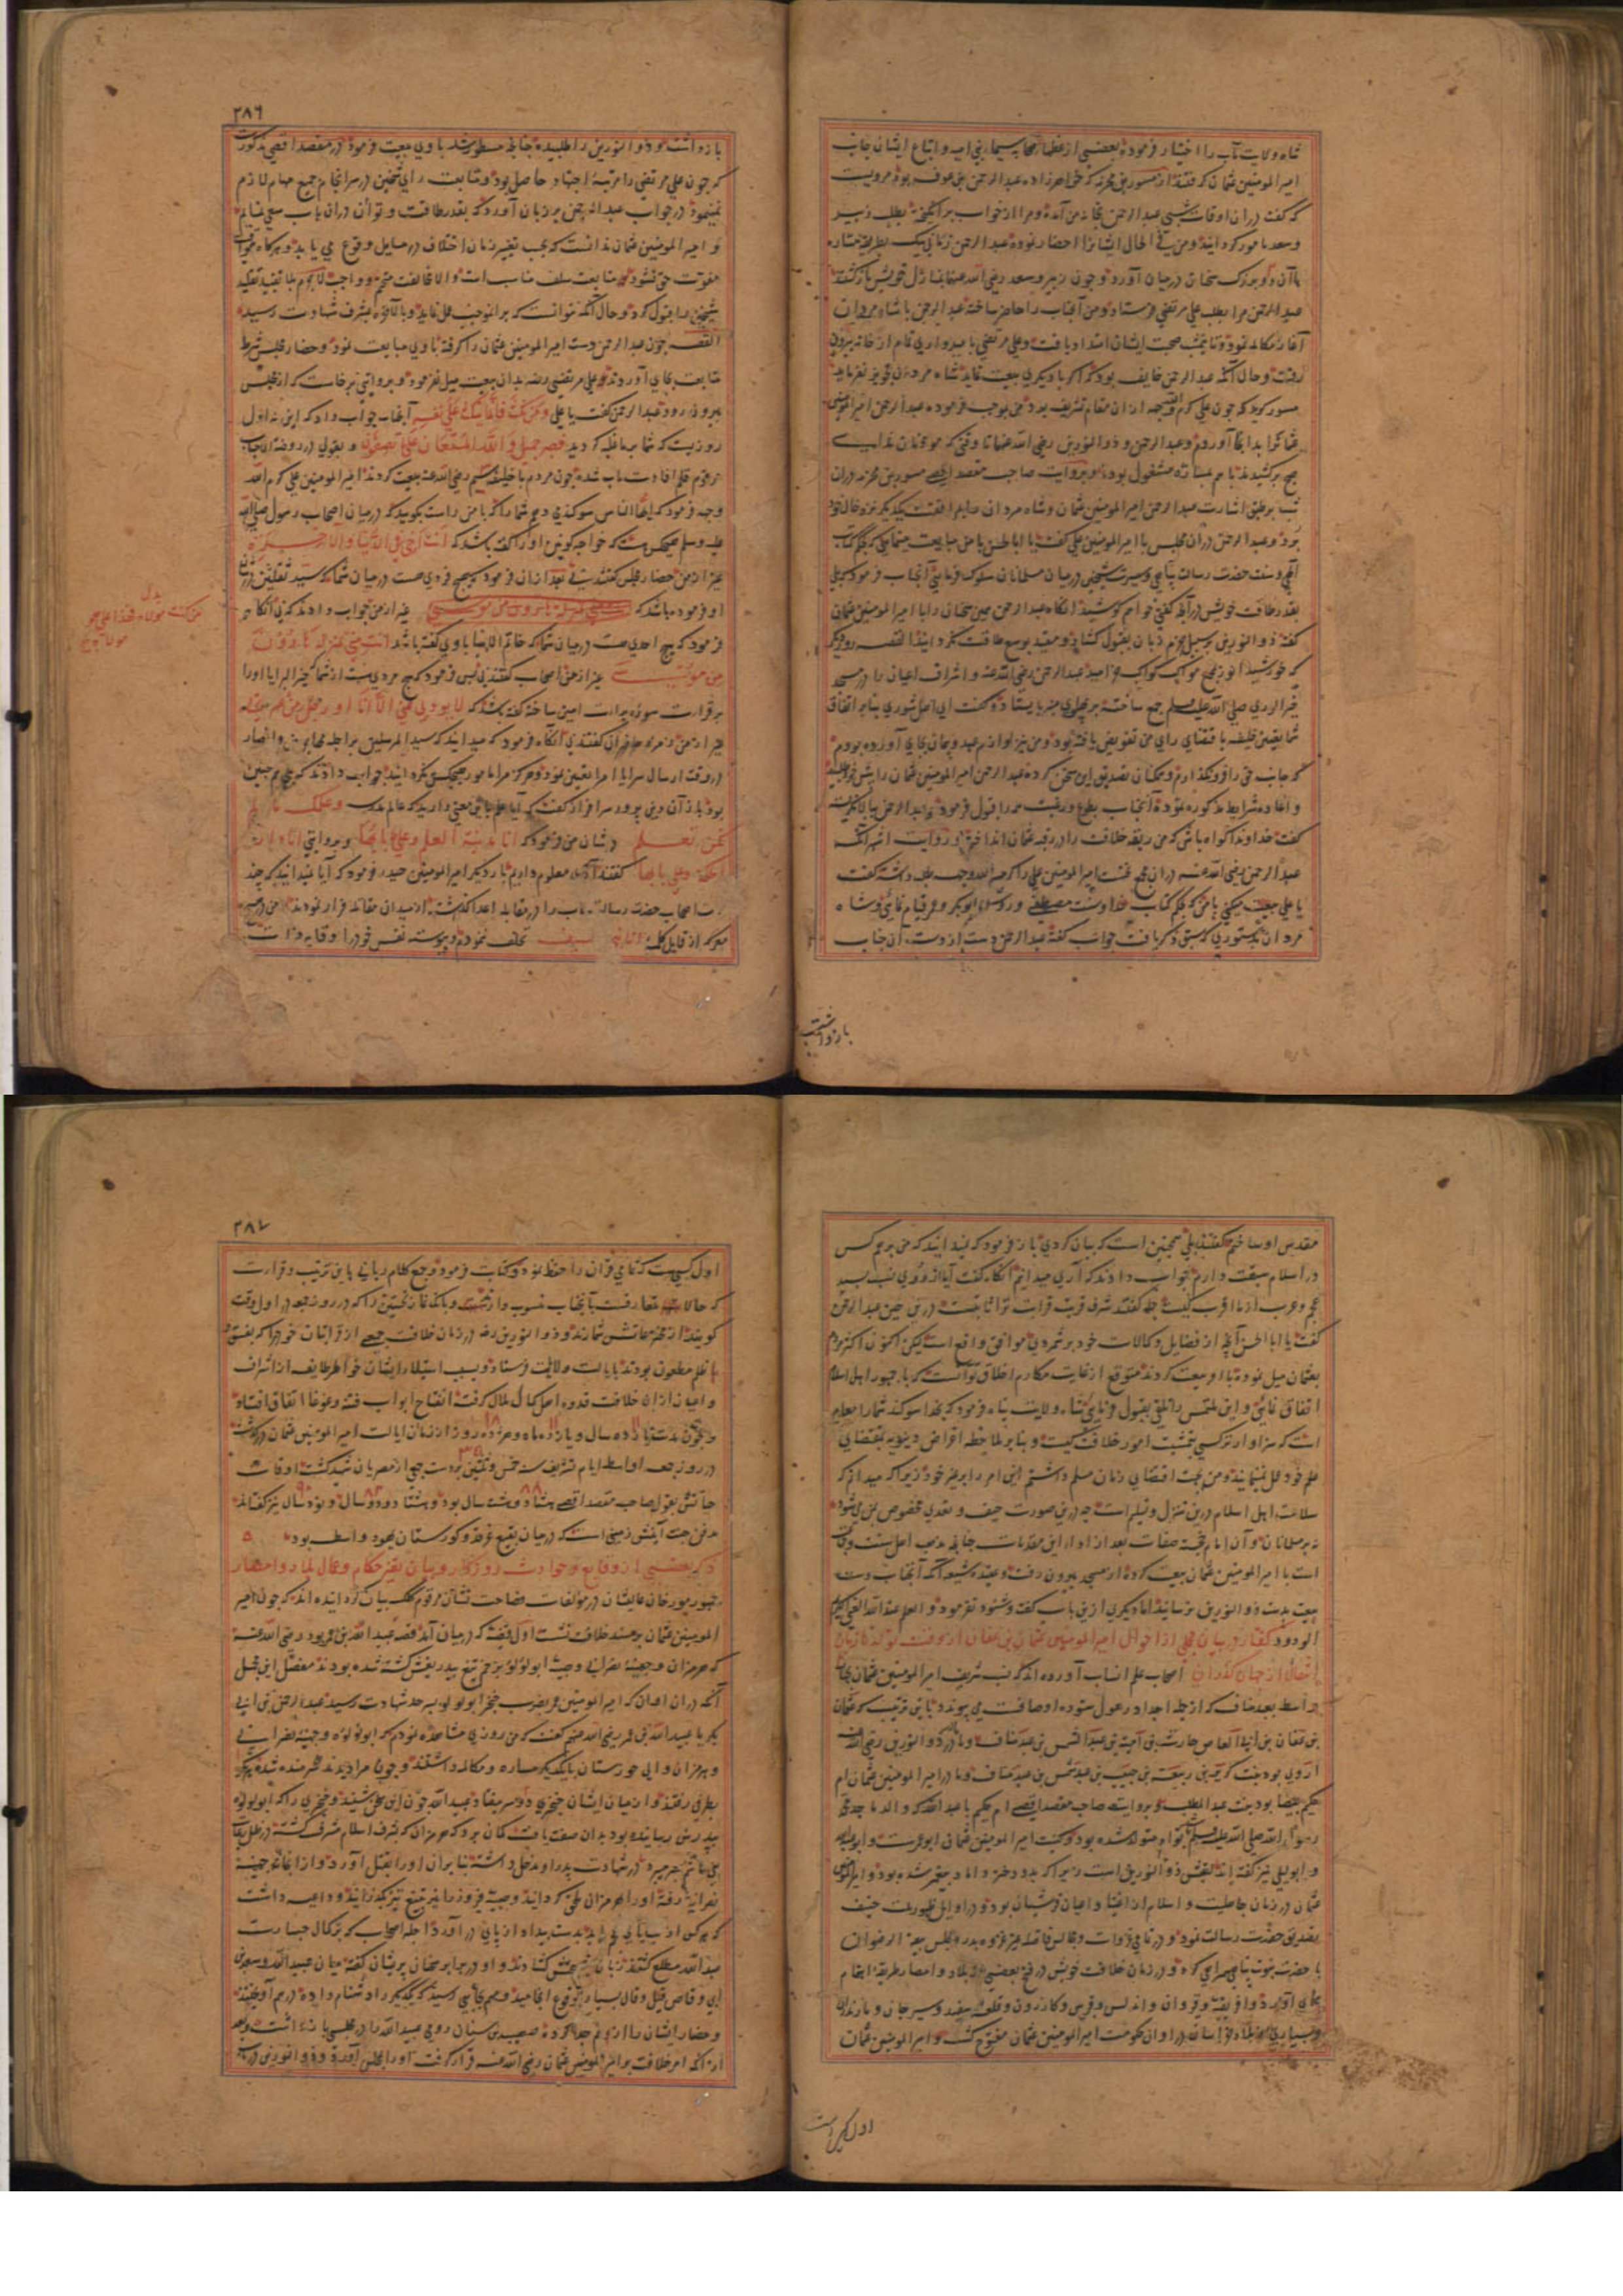 شاه ولایت مآب را اختیار فرموده بعضی از عظما صحابه سیما بنی امیه و اتباع ایشان جانب
امیر المومنین عثمان گرفتند از مسور بن مخرمه که خواهرزاده عبد الرحمن بن عوف بود مرویست
که گفت در ان اوقات شبی عبد الرحمن بخانه من آمده و مرا از خواب برانگیخته بطلب زبیر
و سعد مامور گردانید و من فی الحال ایشانرا احضار نموده عبد الرحمن زمانی بطریق مشاوره
با آن دو بزرگ سخنان در میان آورد و چون زبیر و سعد رضی الله عنهما بمنازل خویش بازگشتند
عبد الرحمن مرا بطلب علی مرتضی فرستاد و من آنجناب را حاضر ساخته عبد الرحمن با شاه مردان
آغاز مکالمه نمود و تا نیمشب صحبت ایشان امتداد یافت و علی مرتضی با امیدواری تمام از خانه بیرون
رفت و حال آنکه عبد الرحمن خایف بود که اگر با دیگری بیعت نماید شاه مردان تجویز نفرماید
مسور گوید که چون علی کرم الله وجهه از ان مقام تشریف برد من بموجب فرموده عبد الرحمن امیر المومنین
عثمانرا بدانجا آوردم و عبد الرحمن و ذو النورین رضی الله عنهما تا وقتی که موذنان ندای
صبح برکشیدند با هم بمشاوره مشغول بودند و بروایت صاحب مقصد اقصی مسور بن مخرمه در ان
شب بر طبق اشارت عبد الرحمن امیر المومنین عثمان و شاه مردان را بموافقت یکدیگر نزد خال خود
برد و عبد الرحمن در ان مجلس با امیر المومنین علی گفت یا ابا الحسن با من مبایعت مینمایی که بحکم کتاب
آلهی و سنت حضرت رسالت پناهی و سیرت شیخین در میان مسلمانان سلوک فرمایی آنجناب فرمود که بلی
بقدر طاقت خویش در آنچه گفتی خواهم کوشید آنگاه عبد الرحمن همین سخنان را با امیر المومنین عثمان
گفته ذو النورین بر سبیل جزم زبان بقبول گشاد و مقید بوسع طاقت نگردانید القصه روز دیگر
خیر الوری صلی الله علیه وسلم جمع ساخته بر پهلوی منبر بایستاد و گفت ای اهل شوری بنابر اتفاق
شما تعیین خلیفه باقتضای رای من تفویض یافته بود و من نیز لوازم عهد و پیمان بجای آورده بودم
که جانب حق را فرو نگذارم و همگنان تصدیق این سخن کرده عبد الرحمن امیر المومنین عثمان را پیش خود طلبید
و اعاده شرایط مذکوره نموده آنجناب بطوع و رغبت همه را قبول فرمود و عبد الرحمن
گفت خداوندا گواه باش که من ربقه خلافت را در رقبه عثمان انداختم و روایت اشهر آنکه
عبد الرحمن رضی الله عنه در ان مجمع نخست امیر المومنین علی را کرم الله وجهه طلب داشته گفت
یا علی بیعت میکنی با من که بحکم کتاب خدا و سنت مصطفی و روش ابو بکر و عمر قیام نمائی و شاه
مردان بدستوری که سبق ذکر یافت جواب گفته عبد الرحمن دست از دست آن جناب
بازداشت
۲۸۶
بازداشت و ذو النورین را طلبیده چنانچه مسطور شد با وی بیعت فرمود در مقصد اقصی مذکورست
که چون علی مرتضی را مرتبه اجتهاد حاصل بود و متابعت رای شیخین در سرانجام جمیع مهام لازم
نمینمود در جواب عبد الرحمن بر زبان آورد که بقدر طاقت و توان در ان باب سعی نمایم
و امیر المومنین عثمان ندانست که بحسب تغییر زمان اختلاف در مسایل وقوع می یابد
شیخین را قبول کرد و حال آنکه نتوانست که بر انموجب عمل نماید و بالآخره بشرف شهادت رسید
القصه چون عبد الرحمن دست امیر المومنین عثمان را گرفته با وی مبایعت نمود و حضار مجلس شرط
متابعت بجای آوردند و علی مرتضی رضه بدان بیعت میل نفرمود و بروایتی برخاست که از مجلس
بیرون رود عبد الرحمن گفت یا علی و من نکث فانما ینکث علی نفسه آنجناب جواب داد که این نه اول
روزیست که شما بر ما غلبه کردید فصبر جمیل و الله المستعان علی ما تصفون و بقولی در روضة الاحباب
مرقوم قلم افادت مآب شده چون مردم با خلیفه سیم رضی الله عنه بیعت کردند امیر المومنین علی کرم الله
وجهه فرمود که ایها الناس سوگند می دهم شما را که با من راست بگویید که در میان اصحاب رسول صلی الله
علیه وسلم هیچکس هست که خواجه کونین او را گفته باشد که انت اخی فی الدنیا و الآخرة
غیر از من حضار مجلس گفتند نی بعد ازان فرمود که هیچ فردی هست در میان شما که سید ثقلین در شان
او فرموده باشد که غیر از من جواب دادند که نی آنگاه
فرمود که هیچ احدی هست در میان شما که خاتم الانبیا با وی گفته باشد انت منی بمنزلة هارون
من موسی غیر از من اصحاب گفتند نی پس فرمود که هیچ مردی هست از شما که خیر البرایا او را
بر قرائت سوره براءت امین ساخته گفته باشد که لا یودی عنی الا انا او رجل من
غیر از من زمره حاضران گفتند نی آنگاه فرمود که میدانید که سید المرسلین بر اجله مهاجرین و انصار
در وقت ارسال سرایا امرا تعیین نمود و هرگز مرا مامور هیچکس نگردانید جواب دادند که بلی همچنین
انا مدینة العلم و علی بابها و بروایتی انا دار
الحکمة و علی بابها گفتند آری معلوم داریم بار دیگر امیر المومنین حیدر فرمود که آیا میدانید که چند
نوبت اصحاب حضرت رسالت مآب را در مقابله اعدا گذاشته از میدان مقاتله فرار نمودند و من در هیچ
معرکه از قایل کلمه انا نبی السیف تخلف ننمودم و پیوسته نفس خود را وقایه ذات
من کنت مولاه فهذا علی
مولاه
مقدس او ساختم گفتند بلی همچنین است که بیان کردی باز فرمود که میدانید که من بر همه کس
در اسلام سبقت دارم جواب دادند که آری میدانیم آنگاه گفت آیا از روی نسب بسید
عجم و عرب از ما اقرب کیست همه گفتند شرف قربت قرابت ترا ثابتست درین حین عبد الرحمن
گفت یا ابا الحسن آنچه از فضایل و کمالات خود برشمردی موافق واقع است لیکن اکنون اکثر مردم
بعثمان میل نموده با او بیعت کردند متوقع از غایت مکارم اخلاق تو آنست که با جمهور اهل اسلام
اتفاق نمائی و این ملتمس را تلقی بقبول فرمایی شاه ولایت پناه فرمود که بخدا سوگند شما را معلوم
است که سزاوارتر کسی بتمشیت امور خلافت کیست و بنابر ملاحظه اغراض دنیویه بمقتضای
علم خود عمل نمینمایید و من بحسب اقتضای زمان مسلم داشتم این امر را بر غیر خود زیرا که میدانم که
سلامت اهل اسلام درین تنزل و تسلیم است چه درین صورت حیف و تعدی مخصوص بمن می شود
نه بر مسلمانان و آن امام خجسته صفات بعد از ادا این مقدمات چنانچه مذهب اهل سنت و جماعت
است با امیر المومنین عثمان بیعت کرده از مسجد بیرون رفت و عقیده شیعه آنکه آنجناب دست
بیعت بدست ذو النورین نرسانید اما دیگری ازین باب گفت و شنود نفرمود و العلم عند الله الغنی
الودود گفتار در بیان مجملی از احوال امیر المومنین عثمان بن عفان از وقت تولد تا زمان
انتقال از جهان گذران اصحاب علم انساب آورده اند که نسب شریف امیر المومنین عثمان بچهار
واسطه بعبد مناف که از جمله اجداد رسول ستوده اوصافست می پیوندد باین ترتیب که عثمان
بن عفان بن ابی العاص بن امیة بن عبد الشمس بن عبد مناف و مادر ذو النورین رضی الله عنه
اروی بود بنت کریز بن ربیعة بن حبیب بن عبد شمس بن عبد مناف و مادر امیر المومنین عثمان ام
حکیم بیضا بود بنت عبد المطلب و بروایت صاحب مقصد اقصی ام حکیم با عبد الله که والد ماجد
رسول الله صلی الله علیه وسلم توام متولد شده بود و کنیت امیر المومنین عثمان ابو عمرست و ابو عبد الله
و ابو لیلی نیز گفته اند لقبش ذو النورین است زیرا که بدو دختر داماد پیغمبر شده بود و امیر المومنین
عثمان در زمان جاهلیت و اسلام از اغنیا و اعیان قرشیان بود و در اوایل ظهور ملت حنیف
تصدیق حضرت رسالت نمود و در تمامی غزوات و مجالس فاضله غیر غزوه بدر و مجلس بیعة الرضوان
با حضرت نبوت پناهی همراهی کرد و در زمان خلافت خویش در فتح بعضی از بلاد و امصار طریقه اهتمام
بجای آورد و افریقیه و قیروان و اندلس و قبرس و کازرون و قلعه سفید و سیرجان و مازندران
و بسیاری از بلاد خراسان در اوان حکومت امیر المومنین عثمان مفتوح گشت و امیر المومنین عثمان
اول کسی است
۲۸۷
اول کسیست که تمامی قرآن را حفظ نمود و کتابت فرمود و جمع کلام ربانی باین ترتیب و قرائت
که حالا متعارفست بآنجناب منسوب و بانگ نماز نخستین را که در روز جمعه در اول وقت
گویند از مخترعاتش شمارند و ذو النورین رضه در زمان خلافت جمعی از قرابتان خود را که بفسق
یا ظلم مطعون بودند بایالت ولایت فرستاد و بسبب استیلاء ایشان خواطر طایفه از اشراف
و اعیان ازان خلافت قدوه اهل کمال ملال گرفته انفتاح ابواب فتنه و غوغا اتفاق افتاد
و چون مدت یازده سال و یازده ماه و هژده روز از زمان ایالت امیر المومنین عثمان درگذشت
در روز جمعه اواسط ایام تشریق سنه خمس و ثلثین بر دست جمعی از مصریان شهید گشت اوقات
حیاتش بقول صاحب مقصد اقصی هشتاد و هشت سال بود و هشتاد و دو سال و نود سال نیز گفته اند
مدفن جنت آیینش زمینی است که در میان بقیع غرقد و گورستان یهود واسطه بود
ذکر بعضی از وقایع و حوادث روزگار و بیان تغیر حکام و عمال بلاد و امصار
جمهور مورخان عالیشان در مولفات فصاحت نشان مرقوم کلک بیان گردانیده اند که چون امیر
المومنین عثمان بر مسند خلافت نشست اول قضیه که در میان آمد قصه عبید الله بن عمر بود رضی الله عنه
که هرمزان و جفینه نصرانی و بنت ابو لولو بزخم تیغ بیدریغش کشته شده بودند مفصل این مجمل
آنکه در ان اوان که امیر المومنین عمر بضرب خنجر ابو لولو بدرجه شهادت رسید عبد الرحمن بن ابی
بکر با عبید الله بن عمر رضی الله عنهم گفت که من روزی مشاهده نمودم که ابو لولوه و جفینه نصرانی
و هرمزان والی خوزستان با یکدیگر مساره و مکالمه داشتند و چون مرا دیدند شرمنده شده هر یک
بطرفی رفتند و از میان ایشان خنجری دو سر بیفتاد عبید الله چون این سخن شنید و خنجری را که ابو لولوه
بپدرش رسانیده بود بدان صفت یافت گمان برد که هرمزان که بشرف اسلام مشرف گشته در ظل رعایت
بنی هاشم بسر میبرد در شهادت پدر او مدخل داشته بنابران او را بقتل آورد و از انجا بخانه جفینه
نصرانی رفته او را بهرمزان ملحق گردانید و بنت فیروز را نیز بتیغ تیز بگذرانید و داعیه داشت
که هر کس از سبایای عجم یابد بدست بیداد از پای در آورد اجله اصحاب که بر کمال جسارت
عبید الله مطلع گشتند زبان بسرزنشش گشادند و او در برابر سخنان پریشان گفته میان عبید الله و سعد بن
ابی وقاص قیل و قال بسیار بوقوع انجامید و مهم بجایی رسید که یکدیگر را دشنام داده در هم آویختند
و حضار ایشان را از هم جدا کرده صهیب بن سنان رومی عبید الله را در مجلسی بازداشت و بعد
ازانکه امر خلافت بر امیر المومنین عثمان رضی الله عنه قرار گرفت او را بمجلس آورد و ذو النورین در باب